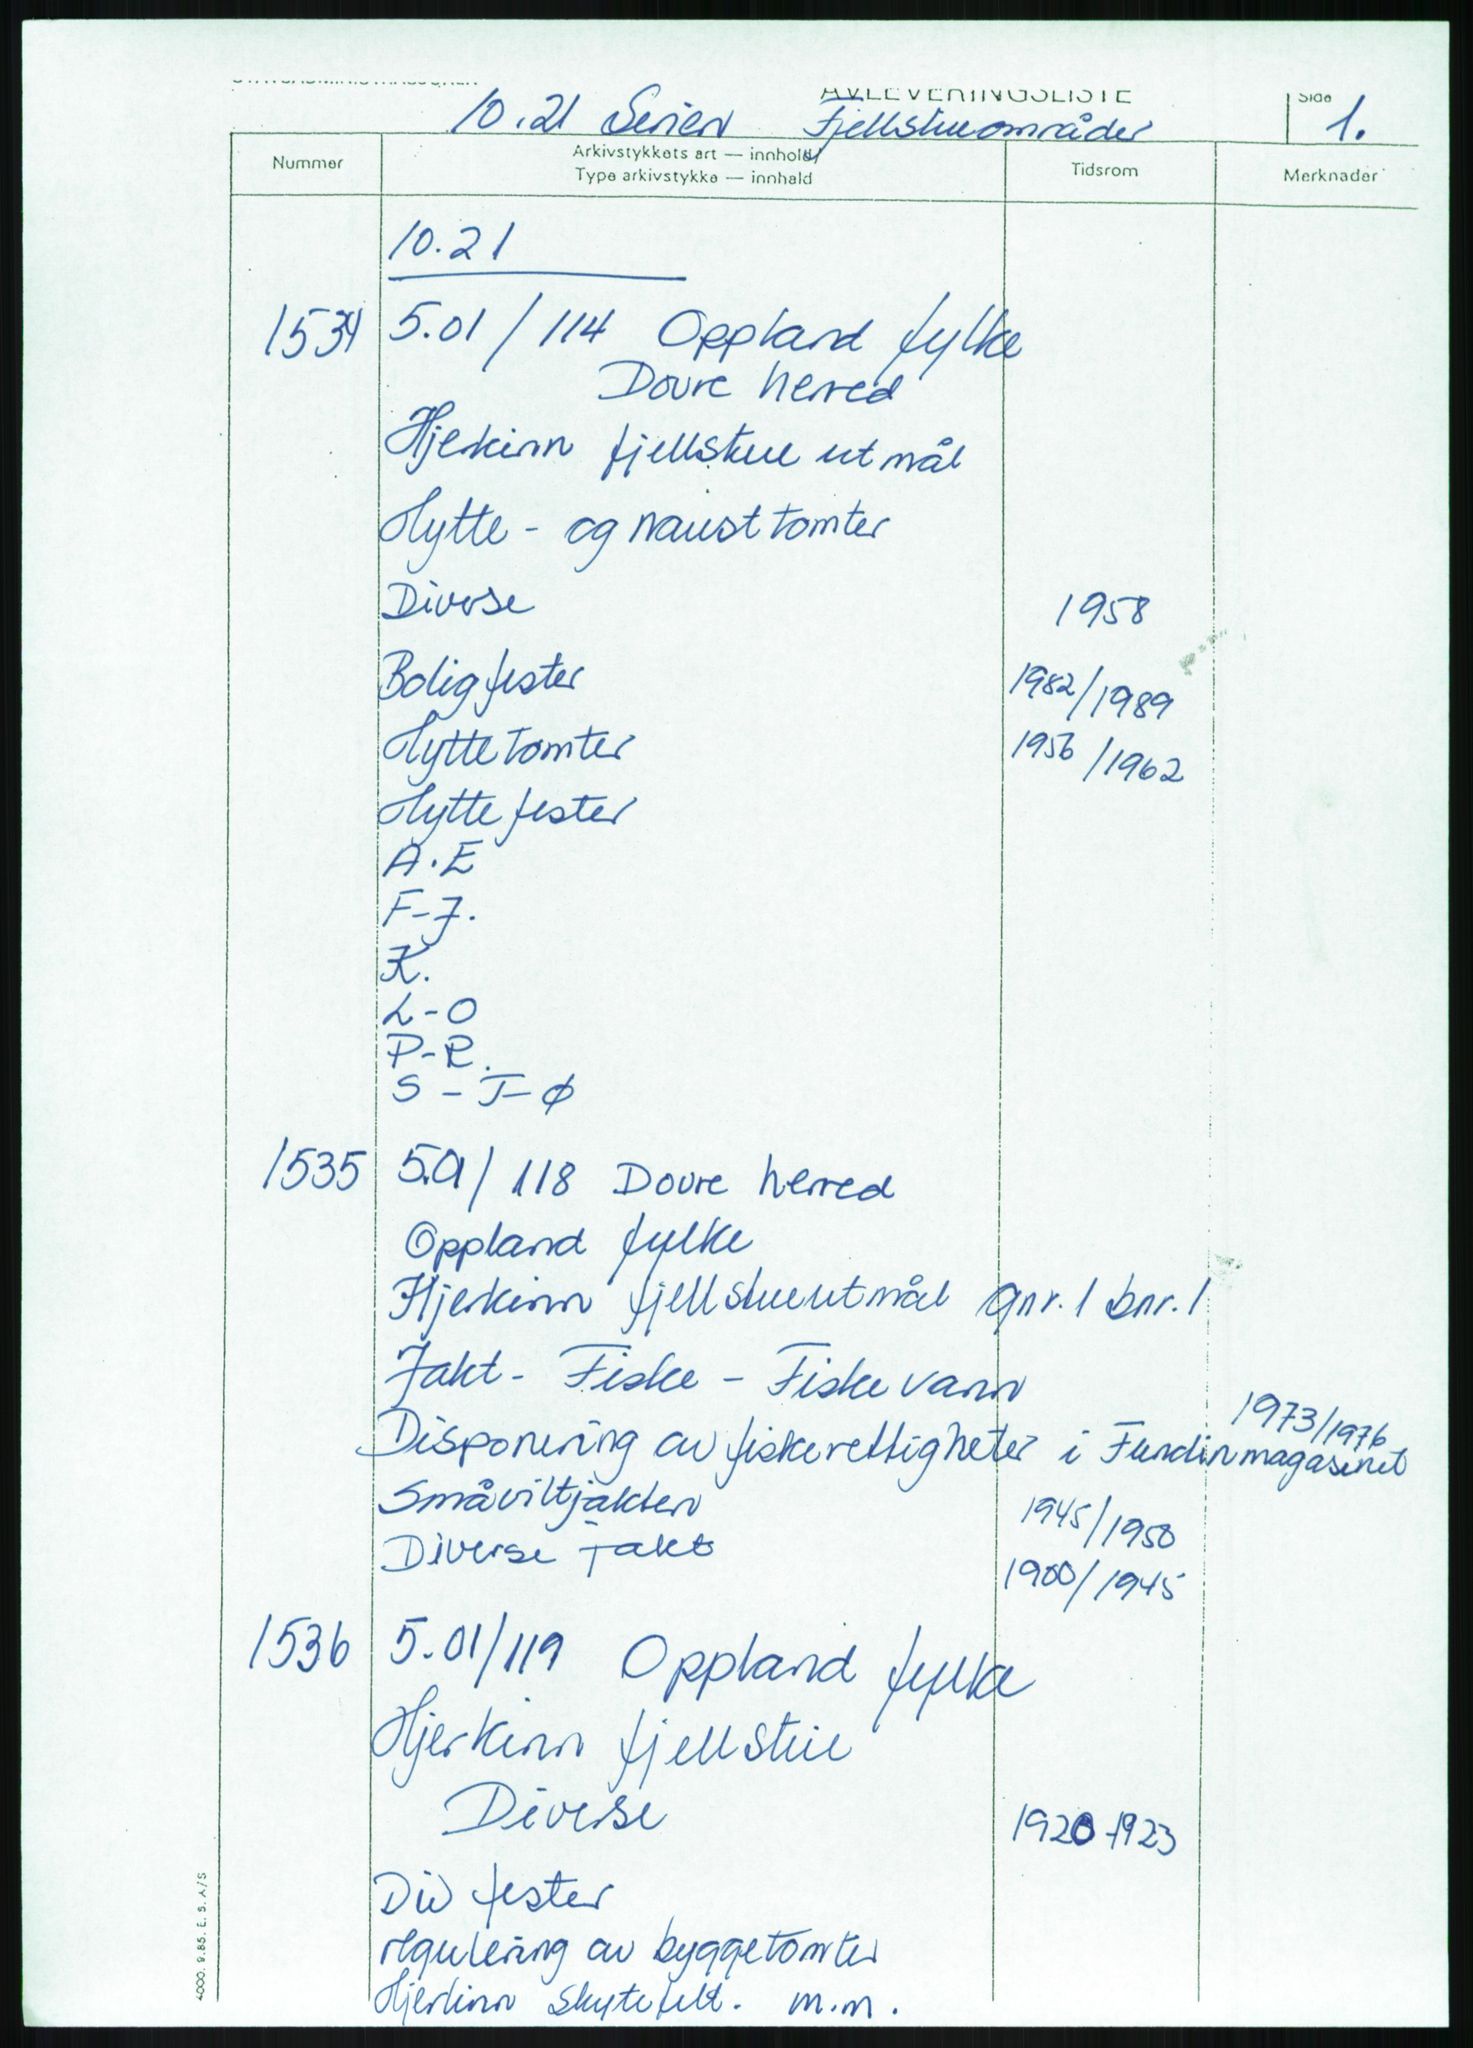 AVLEVERINGSLISTE
Side 1.
10.21 Serien Fjellstueområder
Nummer
Arkivstykkets art — innhold/
Type arkivstykke — innhald
Tidsrom
Merknader
10.21
1534 5.01/114 Oppland fylke
Dovre herred
Hjerkinn fjellstue utmål
Hytte - og nausttomter
Diverse 1958
Boligfester 1982/1989
Hyttetomter 1956/1962
Hyttefester
A.E
F-J.
K.
L-O
P-R.
S - T-Ø
1535 5.01/118 Dovre herred
Oppland fylke
Hjerkinn fjellstueutmål gnr.1 bnr.1
Jakt - Fiske - Fiskevann
1973/1976
Disponering av fiskerettigheter i Fundinmagasinet
Småviltjakten 1945/1950
Diverse jakt 1900/1945
1536 5.01/119 Oppland fylke
Hjerkinn fjellstue
Diverse 1920-1923
Div fester
regulering av byggetomter
Hjerkinn Skytefelt. m.m.
4000. 9.85. E. S. A/S